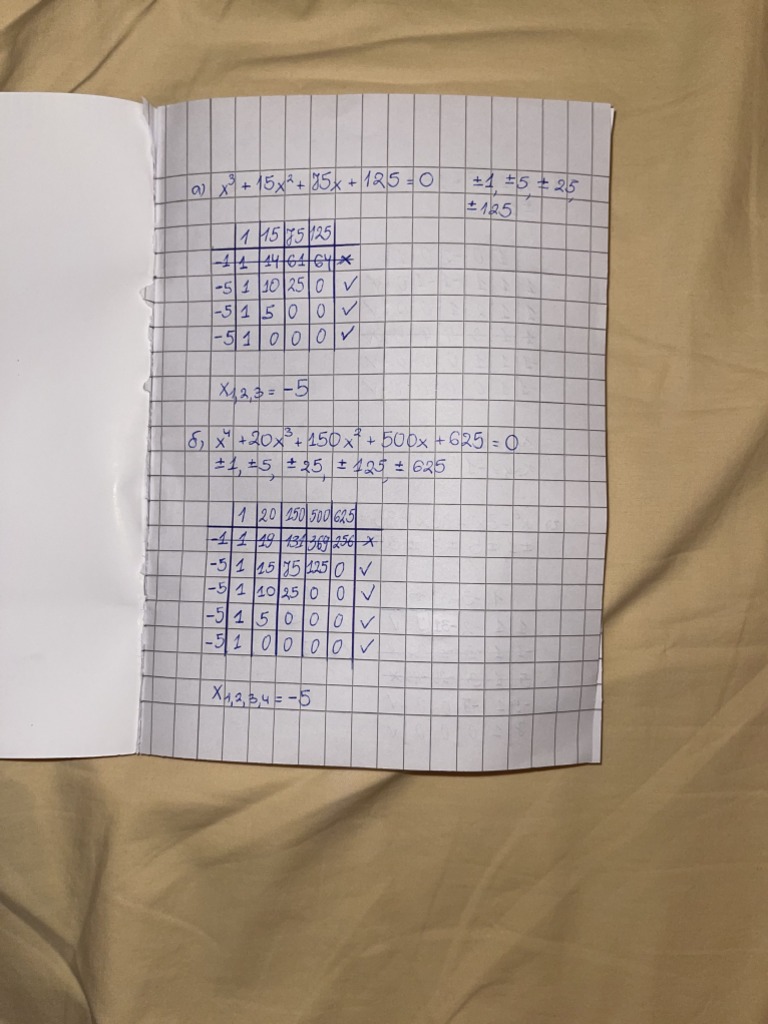 а) x³ + 15x² + 75x + 125 = 0 ±1, ±5, ± 25,
± 125
1 15 75 125
-1 1 14 61 64 ×
-5 1 10 25 0 ✓
-5 1 5 0 0 ✓
-5 1 0 0 0 ✓
x₁,₂,₃ = -5
б) x⁴ + 20x³ + 150x² + 500x + 625 = 0
±1, ±5, ± 25, ± 125, ± 625
1 20 150 500 625
-1 1 19 131 369 256 ×
-5 1 15 75 125 0 ✓
-5 1 10 25 0 0 ✓
-5 1 5 0 0 0 ✓
-5 1 0 0 0 0 ✓
x₁,₂,₃,₄ = -5